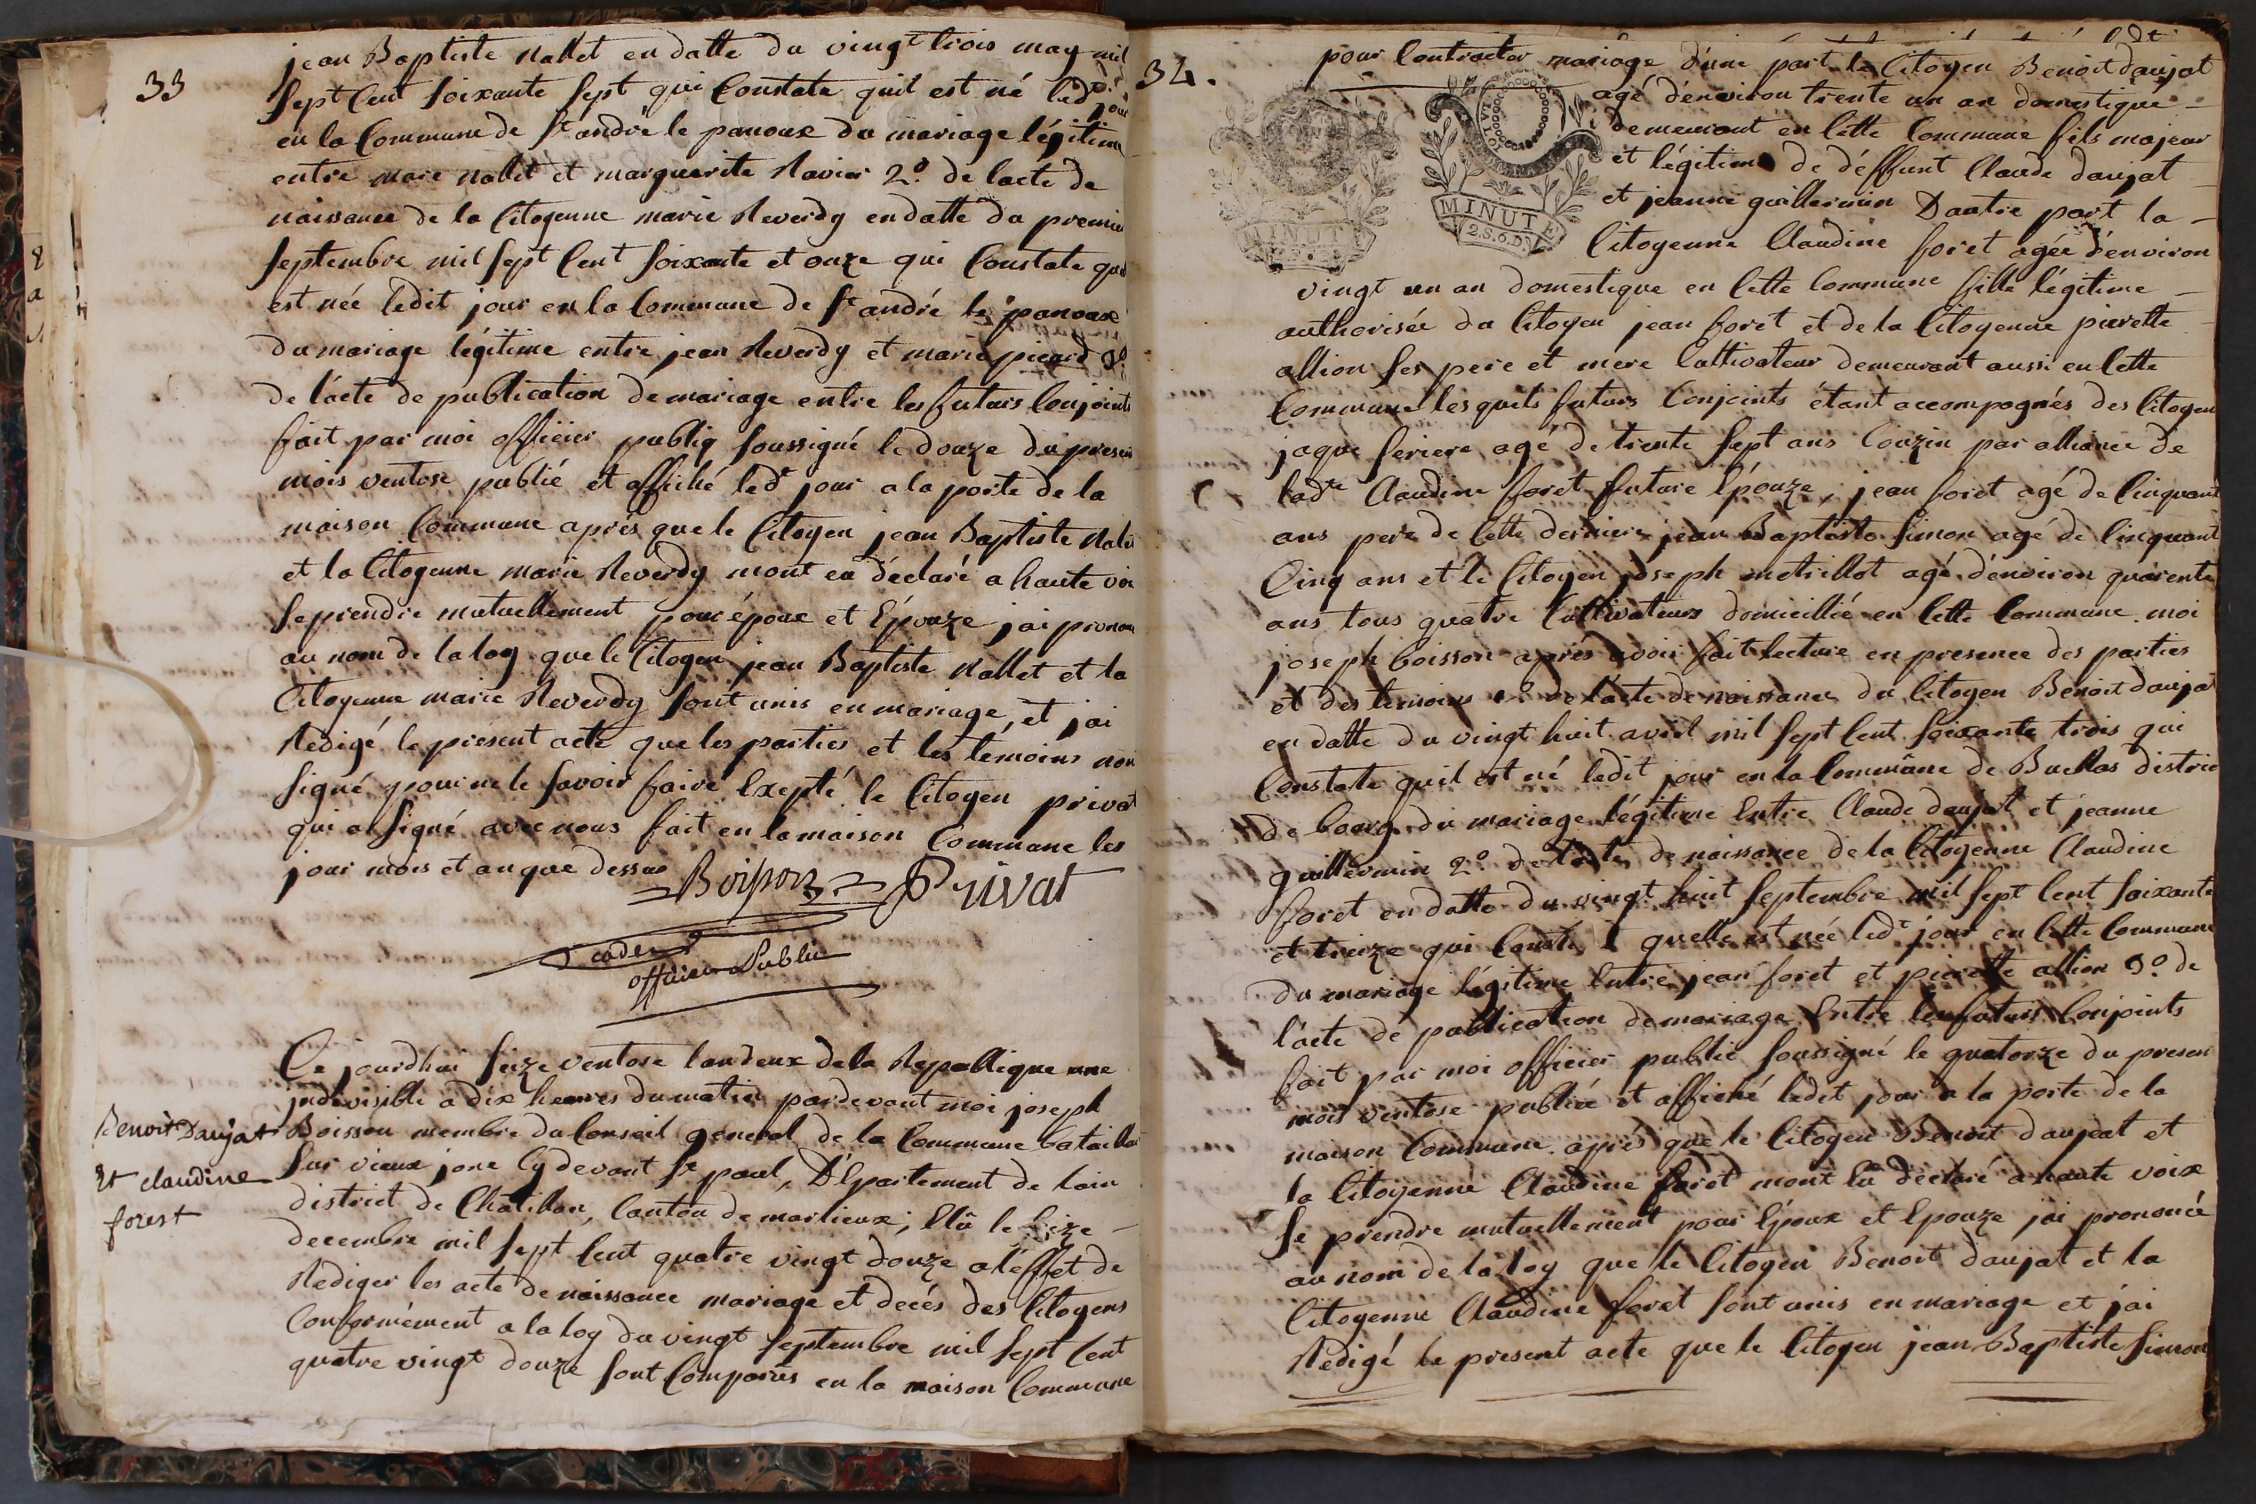 33
jean Baptiste Nallet en datte du vingt trois may mil
sept Cent soixante sept qui Constate quil est né led.t jour
en la Commune de st andré le panoux du mariage légitime
entre marc nallet et marguerite Ravier 2.o de lacte de
naissance de la Citoyenne marie Reverdy en datte du premier
septembre mil sept Cent soixante et onze qui Constate quel
est née ledit jour en la Commune de st andré le panoux
du mariage légitime entre jean Reverdy et marie picard 3.o
de l'acte de publication de mariage entre les futurs Conjoints
fait par moi officier publiq soussigné le douze du present
mois ventose publié et affiché ledt jour a la porte de la
maison Commune aprés que le Citoyen jean Baptiste Nallet
et la Citoyenne marie Reverdy mont eu déclaré a haute voix
se prendre mutuellement pour époux et Épouze jai pronon
au nom de la loy que le Citoyen jean Baptiste Nallet et la
Citoyenne marie Reverdy sont unis en mariage, et jai
Rédigé le présent acte que les parties et les témoins non
signé pour ne le savoir faire Exepté le Citoyen privat
qui a signé avec nous fait en la maison Commune les
jour mois et an que dessus
Boisson Privat
officier Public
Ce jourdhui seize ventose lan deux de la Republique une
indivisible a dix heures du matin pardevant moi joseph
Benoit Daujat
Et claudine
forest
Boisson membre du Conseil général de la Commune bataillar
sur vieux jonc Cy devant st paul, Département de lain
district de Châtillon, Canton de marlieux; Elû le seize
decembre mil sept Cent quatre vingt douze a l'effet de
Rédiger les acte de naissance mariage et decés des Citoyens
Conformément a la loy du vingt septembre mil sept Cent
quatre vingt douze sont Comparûs en la maison Commune
34.
pour Contracter mariage d'une part le Citoyen Benoit daujat
agé denviron trente un an domestique
demeurant en Cette Commune fils majeur
et légitime de déffunt Claude daujat
et jeanne guillermin Dautre part la
Citoyenne Claudine foret agée d'environ
MINUTE
MINUTE
2.S.6.D.
vingt un an domestique en Cette Commune fille légitime
authorisée du Citoyen jean foret et de la Citoyenne pierrette
allion ses pere et mere Cultivateur demeurant aussi en Cette
Commune lesquels futurs Conjoints étant accompagnés des Citoyen
jaque feriere agé de trente sept ans Couzin par alliance de
ladte Claudine foret future Épouze, jean foret agé de Cinquant
ans pere de Cette derniere jean Baptiste Simon agé de Cinquant
Cinq ans et le Citoyen joseph metrillot agé d'environ quarente
ans tous quatre Cultivateurs domicillié en Cette Commune. moi
joseph boisson aprés avoir fait lecture en presence des parties
et des temoins 1.o de l'acte de naissance du Citoyen Benoit daujat
en datte du vingt huit avril mil sept Cent soixante trois qui
Constate quil est né ledit jour en la Commune de Buellas distric
de bourg du mariage légitime Entre Claude daujat et jeanne
guillermin 2.o de l'acte de naissance de la Citoyenne Claudine
foret en datte du vingt huit septembre mil sept Cent soixante
et treize qui Constate quelle est née ledt jour en Cette Commune
du mariage légitime Entre jean foret et pierrette allion 3.o de
l'acte de publication de mariage Entre les futurs Conjoints
fait par moi officier public soussigné le quatorze du present
mois ventose publié et affiché ledit jour a la porte de la
maison Commune. aprés que le Citoyen Benoit daujeat et
la Citoyenne Claudine foret mont Eû déclaré a haute voix
se prendre mutuellement pour Époux et Epouze jai prononcé
au nom de la loy que le Citoyen Benoit daujat et la
Citoyenne Claudine foret sont unis en mariage et jai
Redigé le present acte que le Citoyen jean Baptiste Simon